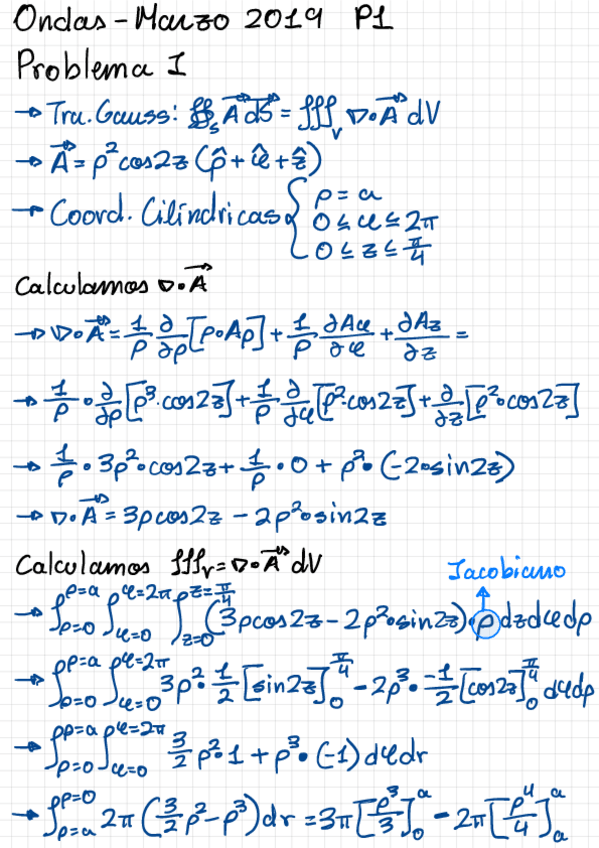 Ondas - Marzo 2019 P1
Problema 1
→ Tra. Gauss: ∯_S A⃗ dS⃗ = ∭_V ∇·A⃗ dV
→ A⃗ = ρ² cos2z (ρ̂ + φ̂ + ẑ)
→ Coord. Cilíndricas { ρ = a
0 ≤ φ ≤ 2π
0 ≤ z ≤ π/4
Calculamos ∇·A⃗
→ ∇·A⃗ = 1/ρ ∂/∂ρ [ρ·Aρ] + 1/ρ ∂Aφ/∂φ + ∂Az/∂z =
→ 1/ρ · ∂/∂ρ [ρ³·cos2z] + 1/ρ ∂/∂φ [ρ²·cos2z] + ∂/∂z [ρ²·cos2z]
→ 1/ρ · 3ρ²·cos2z + 1/ρ · 0 + ρ²·(-2·sin2z)
→ ∇·A⃗ = 3ρcos2z - 2ρ²·sin2z
Calculamos ∭_V = ∇·A⃗ dV
Jacobiano
→ ∫_{ρ=0}^{ρ=a} ∫_{φ=0}^{φ=2π} ∫_{z=0}^{z=π/4} (3ρcos2z - 2ρ²·sin2z)·ρ dzdφdρ
→ ∫_{ρ=0}^{ρ=a} ∫_{φ=0}^{φ=2π} 3ρ²·1/2 [sin2z]_0^{π/4} - 2ρ³·-1/2 [cos2z]_0^{π/4} dφdρ
→ ∫_{ρ=0}^{ρ=a} ∫_{φ=0}^{φ=2π} 3/2 ρ²·1 + ρ³·(-1) dφdr
→ ∫_{ρ=a}^{ρ=0} 2π (3/2 ρ² - ρ³) dr = 3π [ρ³/3]_0^a - 2π [ρ⁴/4]_a^a